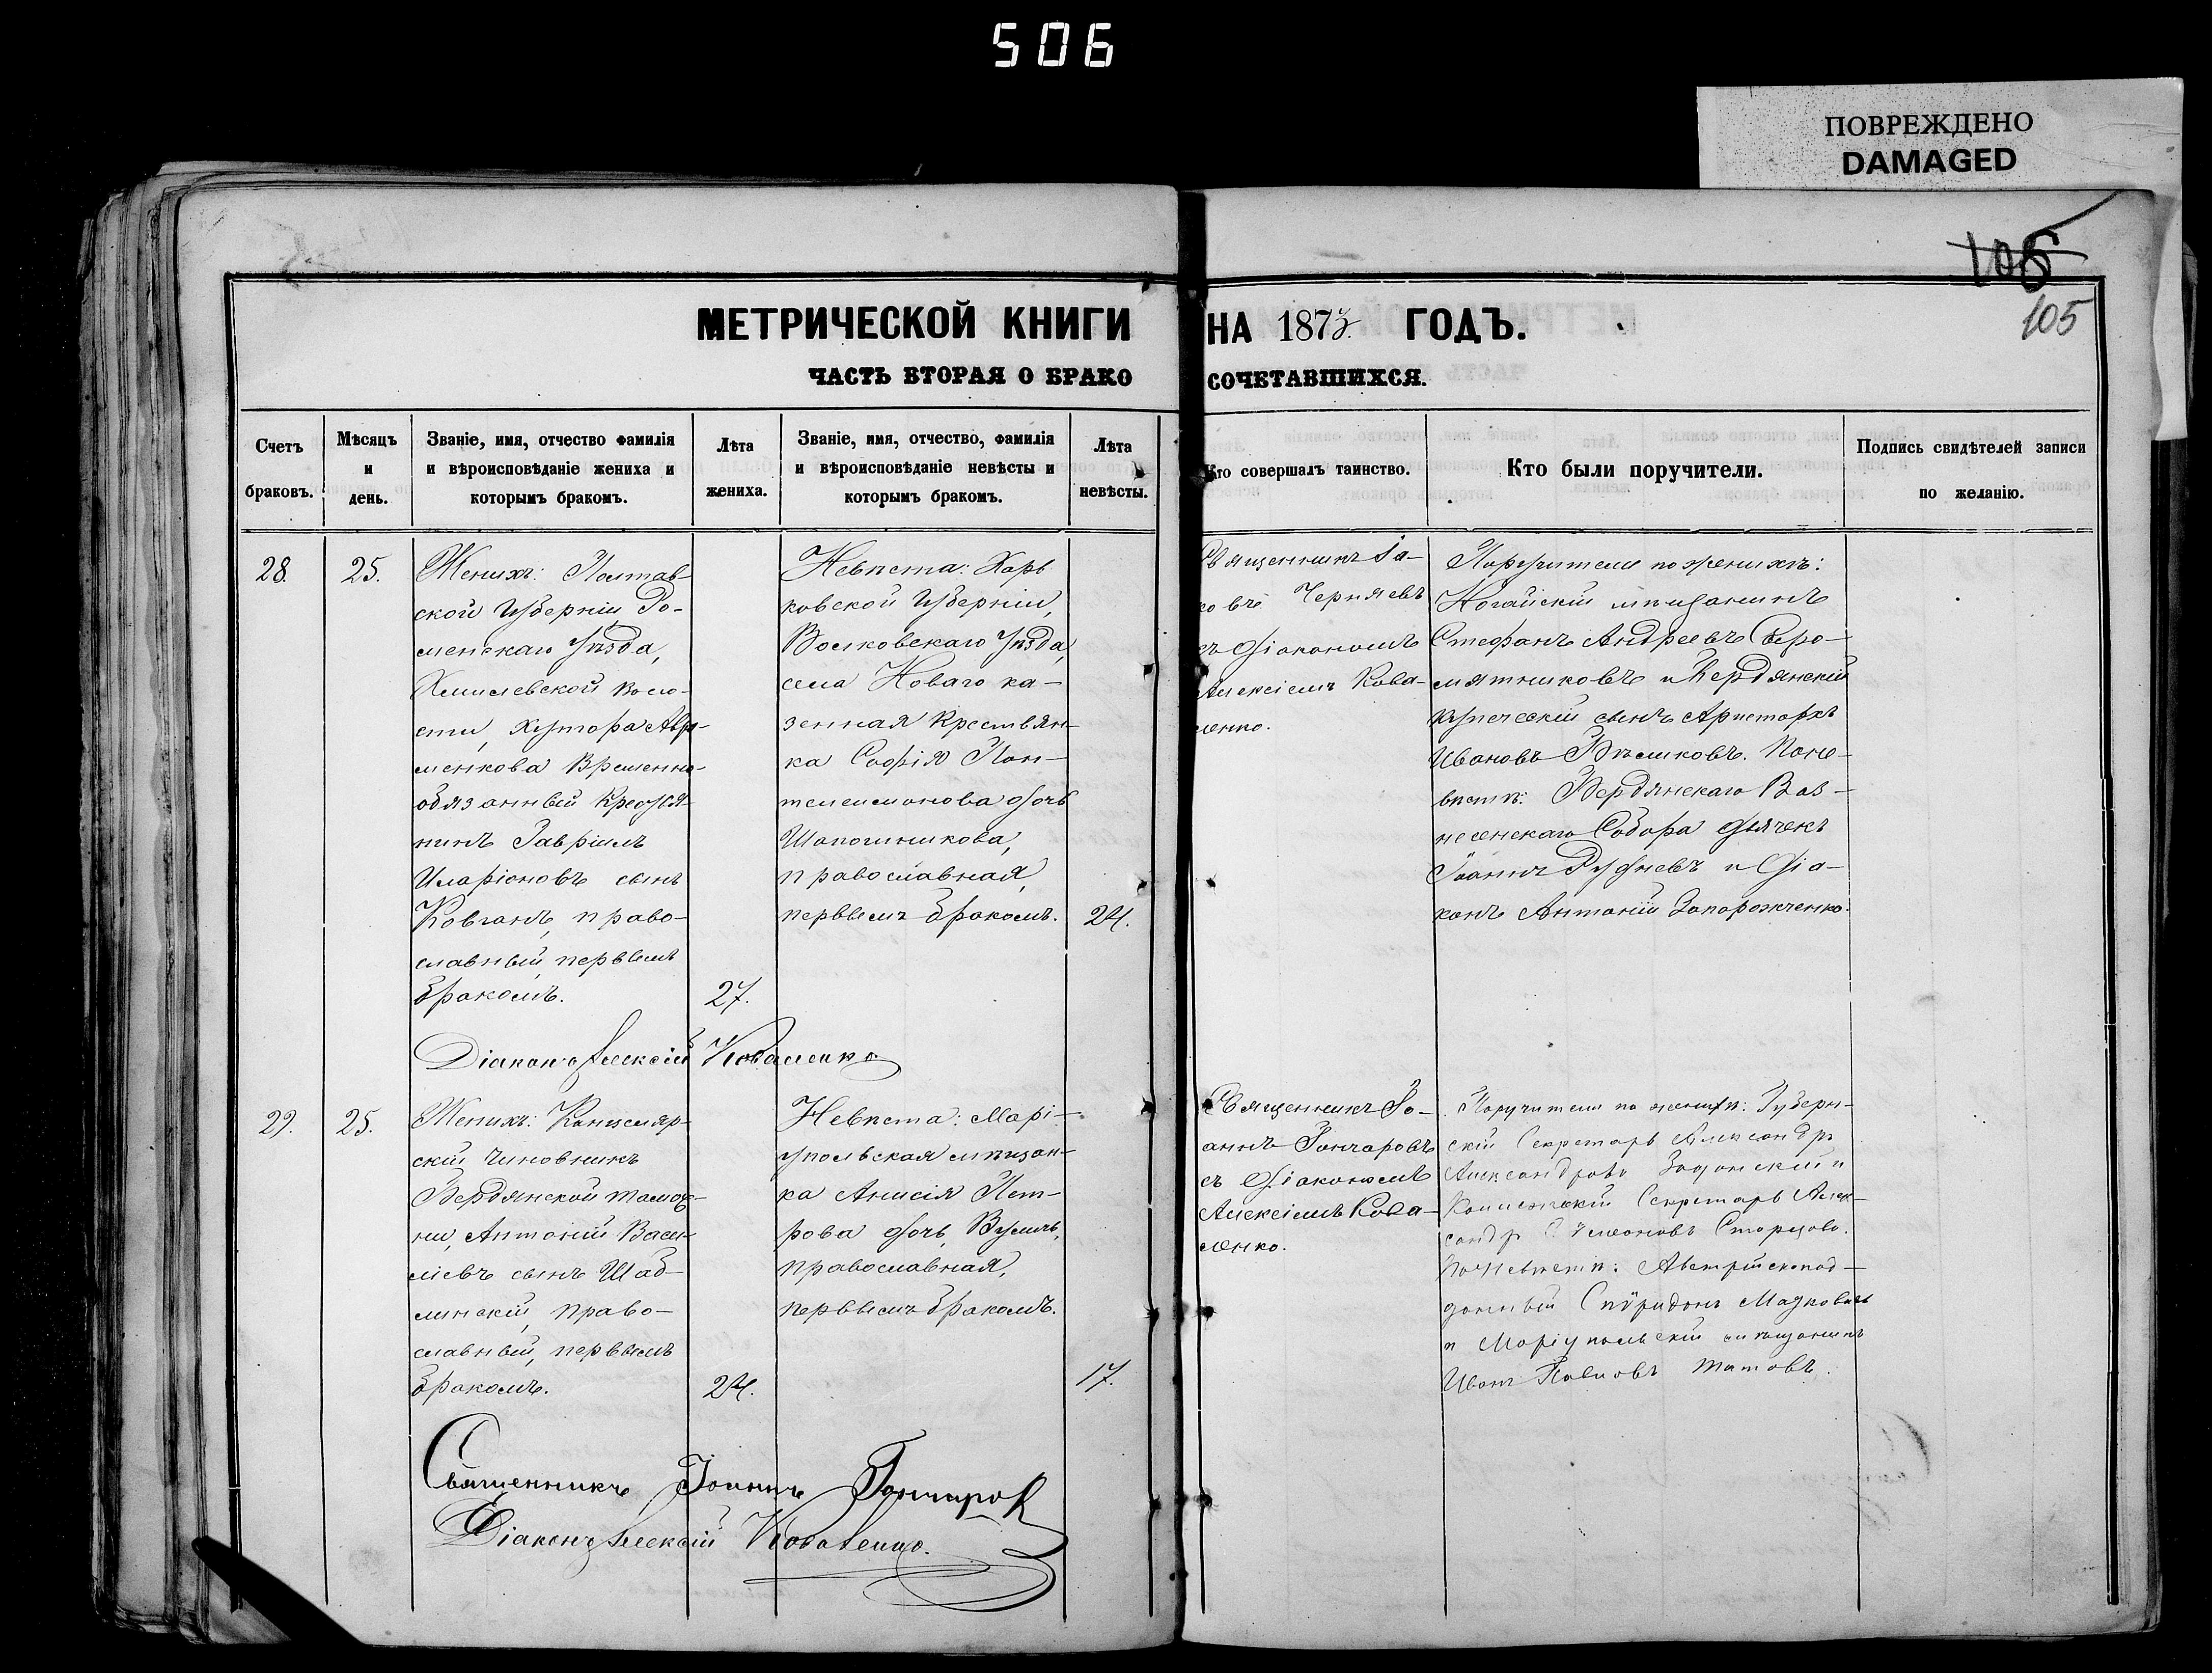 506
ПОВРЕЖДЕНО
DAMAGED
105
105
МЕТРИЧЕСКОЙ КНИГИ НА 1873 ГОДЪ.
ЧАСТЬ ВТОРАЯ О БРАКОСОЧЕТАВШИХСЯ.
Счетъ браковъ.
Мѣсяцъ и день.
Званіе, имя, отчество фамилія
и вѣроисповѣданіе жениха и
которымъ бракомъ.
Лѣта жениха.
Званіе, имя, отчество, фамилія
и вѣроисповѣданіе невѣсты и
которымъ бракомъ.
Лѣта невѣсты.
Кто совершалъ таинство.
Кто были поручители.
Подпись свидѣтелей записи
по желанію.
28.
25.
Женихъ: Полтав-
ской Губерніи Ро-
менскаго Уѣзда,
Хмилевской воло-
сти, хутора Авра-
менкова Временно-
обязанный Кресть я-
нинъ Гавріилъ
Иларіоновъ сынъ
Ковганъ, право-
славный, первымъ
бракомъ.
27.
Невѣста: Харь
ковской Губерніи,
Волковскаго Уѣзда,
села Новаго ка-
зенная Крестьян-
ка Софія Пан-
телеимонова дочь
Шапошникова,
православная,
первымъ бракомъ.
24.
Священникъ Іа-
ковъ Черняевъ
съ Діакономъ
Алексіемъ Кова-
ленко.
Поручители по женихѣ:
Ногайскій мѣщанинъ
Стефанъ Андреевъ Сыро-
мятниковъ и Бердянскій
купеческій сынъ Аристархъ
Ивановъ Бѣликовъ. По не-
вѣстѣ: Бердянскаго Воз-
несенскаго Собора дьячекъ
Іоаннъ Рудневъ и Діа-
конъ Антоній Запорожченко.
Діаконъ Алексій Коваленко
29.
25.
Женихъ: Канцеляр-
скій чиновникъ
Бердянской тамож-
ни, Антоній Васи-
ліевъ сынъ Шаб-
линскій, право-
славный, первымъ
бракомъ.
24.
Невѣста: Марі-
упольская мѣщан-
ка Анисія Пет-
рова дочь,
православная,
первымъ бракомъ.
17.
Священникъ Іо-
аннъ Гончаровъ
съ Діакономъ
Алексіемъ Кова-
ленко.
Поручители по женихѣ: Губерн-
скій Секретарь Александръ
Александровъ и
Коллежскій Секретарь Алек-
сандр Симеоновъ
По невѣстѣ: Австрійскопод-
данный Спиридонъ
и Маріупольскій мѣщанинъ
Иванъ Павловъ
Священникъ Іоаннъ Гончаровъ
Діаконъ Алексій Коваленко.